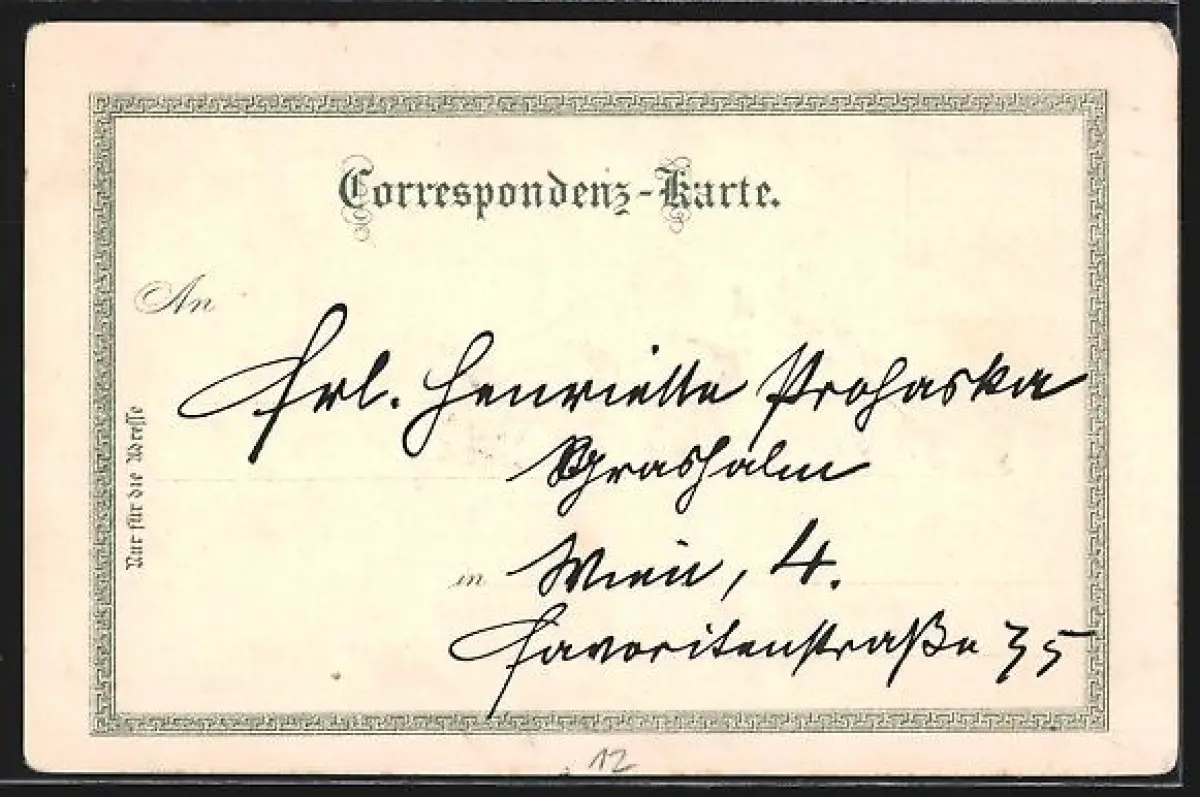 Correspondenz-Karte.
An
Frl. Henriette Prohaska
Grashalm
in Wien, 4.
Favoritenstraße 35
Nur für die Adresse
12